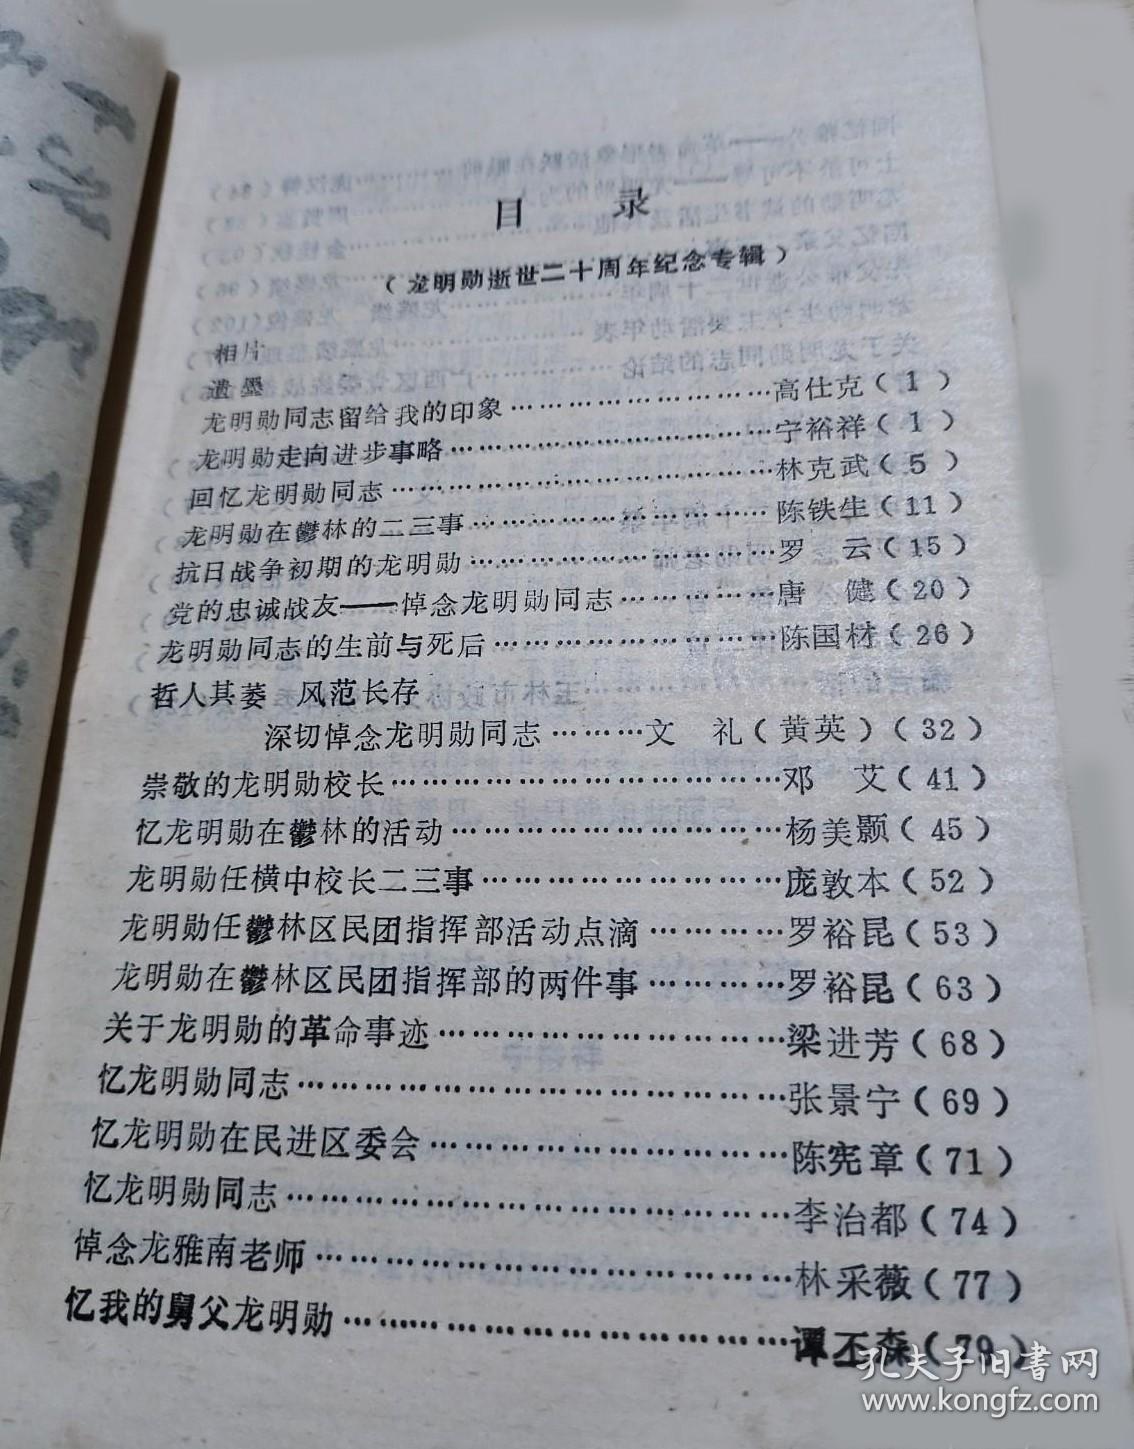 目 录
（龙明勋逝世二十周年纪念专辑）
相片
遗墨
龙明勋同志留给我的印象……………………高仕克（1）
龙明勋走向进步事略…………………………宁裕祥（1）
回忆龙明勋同志………………………………林克武（5）
龙明勋在鬱林的二三事………………………陈铁生（11）
抗日战争初期的龙明勋………………………罗 云（15）
党的忠诚战友——悼念龙明勋同志…………唐 健（20）
龙明勋同志的生前与死后……………………陈国材（26）
哲人其萎 风范长存
深切悼念龙明勋同志………文 礼（黄英）（32）
崇敬的龙明勋校长……………………………邓 艾（41）
忆龙明勋在鬱林的活动………………………杨美颢（45）
龙明勋任横中校长二三事……………………庞敦本（52）
龙明勋任鬱林区民团指挥部活动点滴………罗裕昆（53）
龙明勋在鬱林区民团指挥部的两件事………罗裕昆（63）
关于龙明勋的革命事迹………………………梁进芳（68）
忆龙明勋同志…………………………………张景宁（69）
忆龙明勋在民进区委会………………………陈宪章（71）
忆龙明勋同志…………………………………李治都（74）
悼念龙雅南老师………………………………林采薇（77）
忆我的舅父龙明勋……………………………谭丕森（79）
孔夫子旧書网
www.kongfz.com